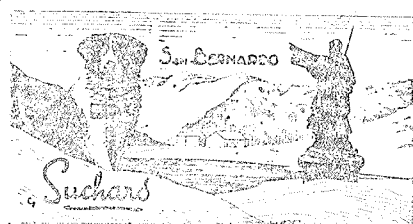 San BERNARDO
Suchard